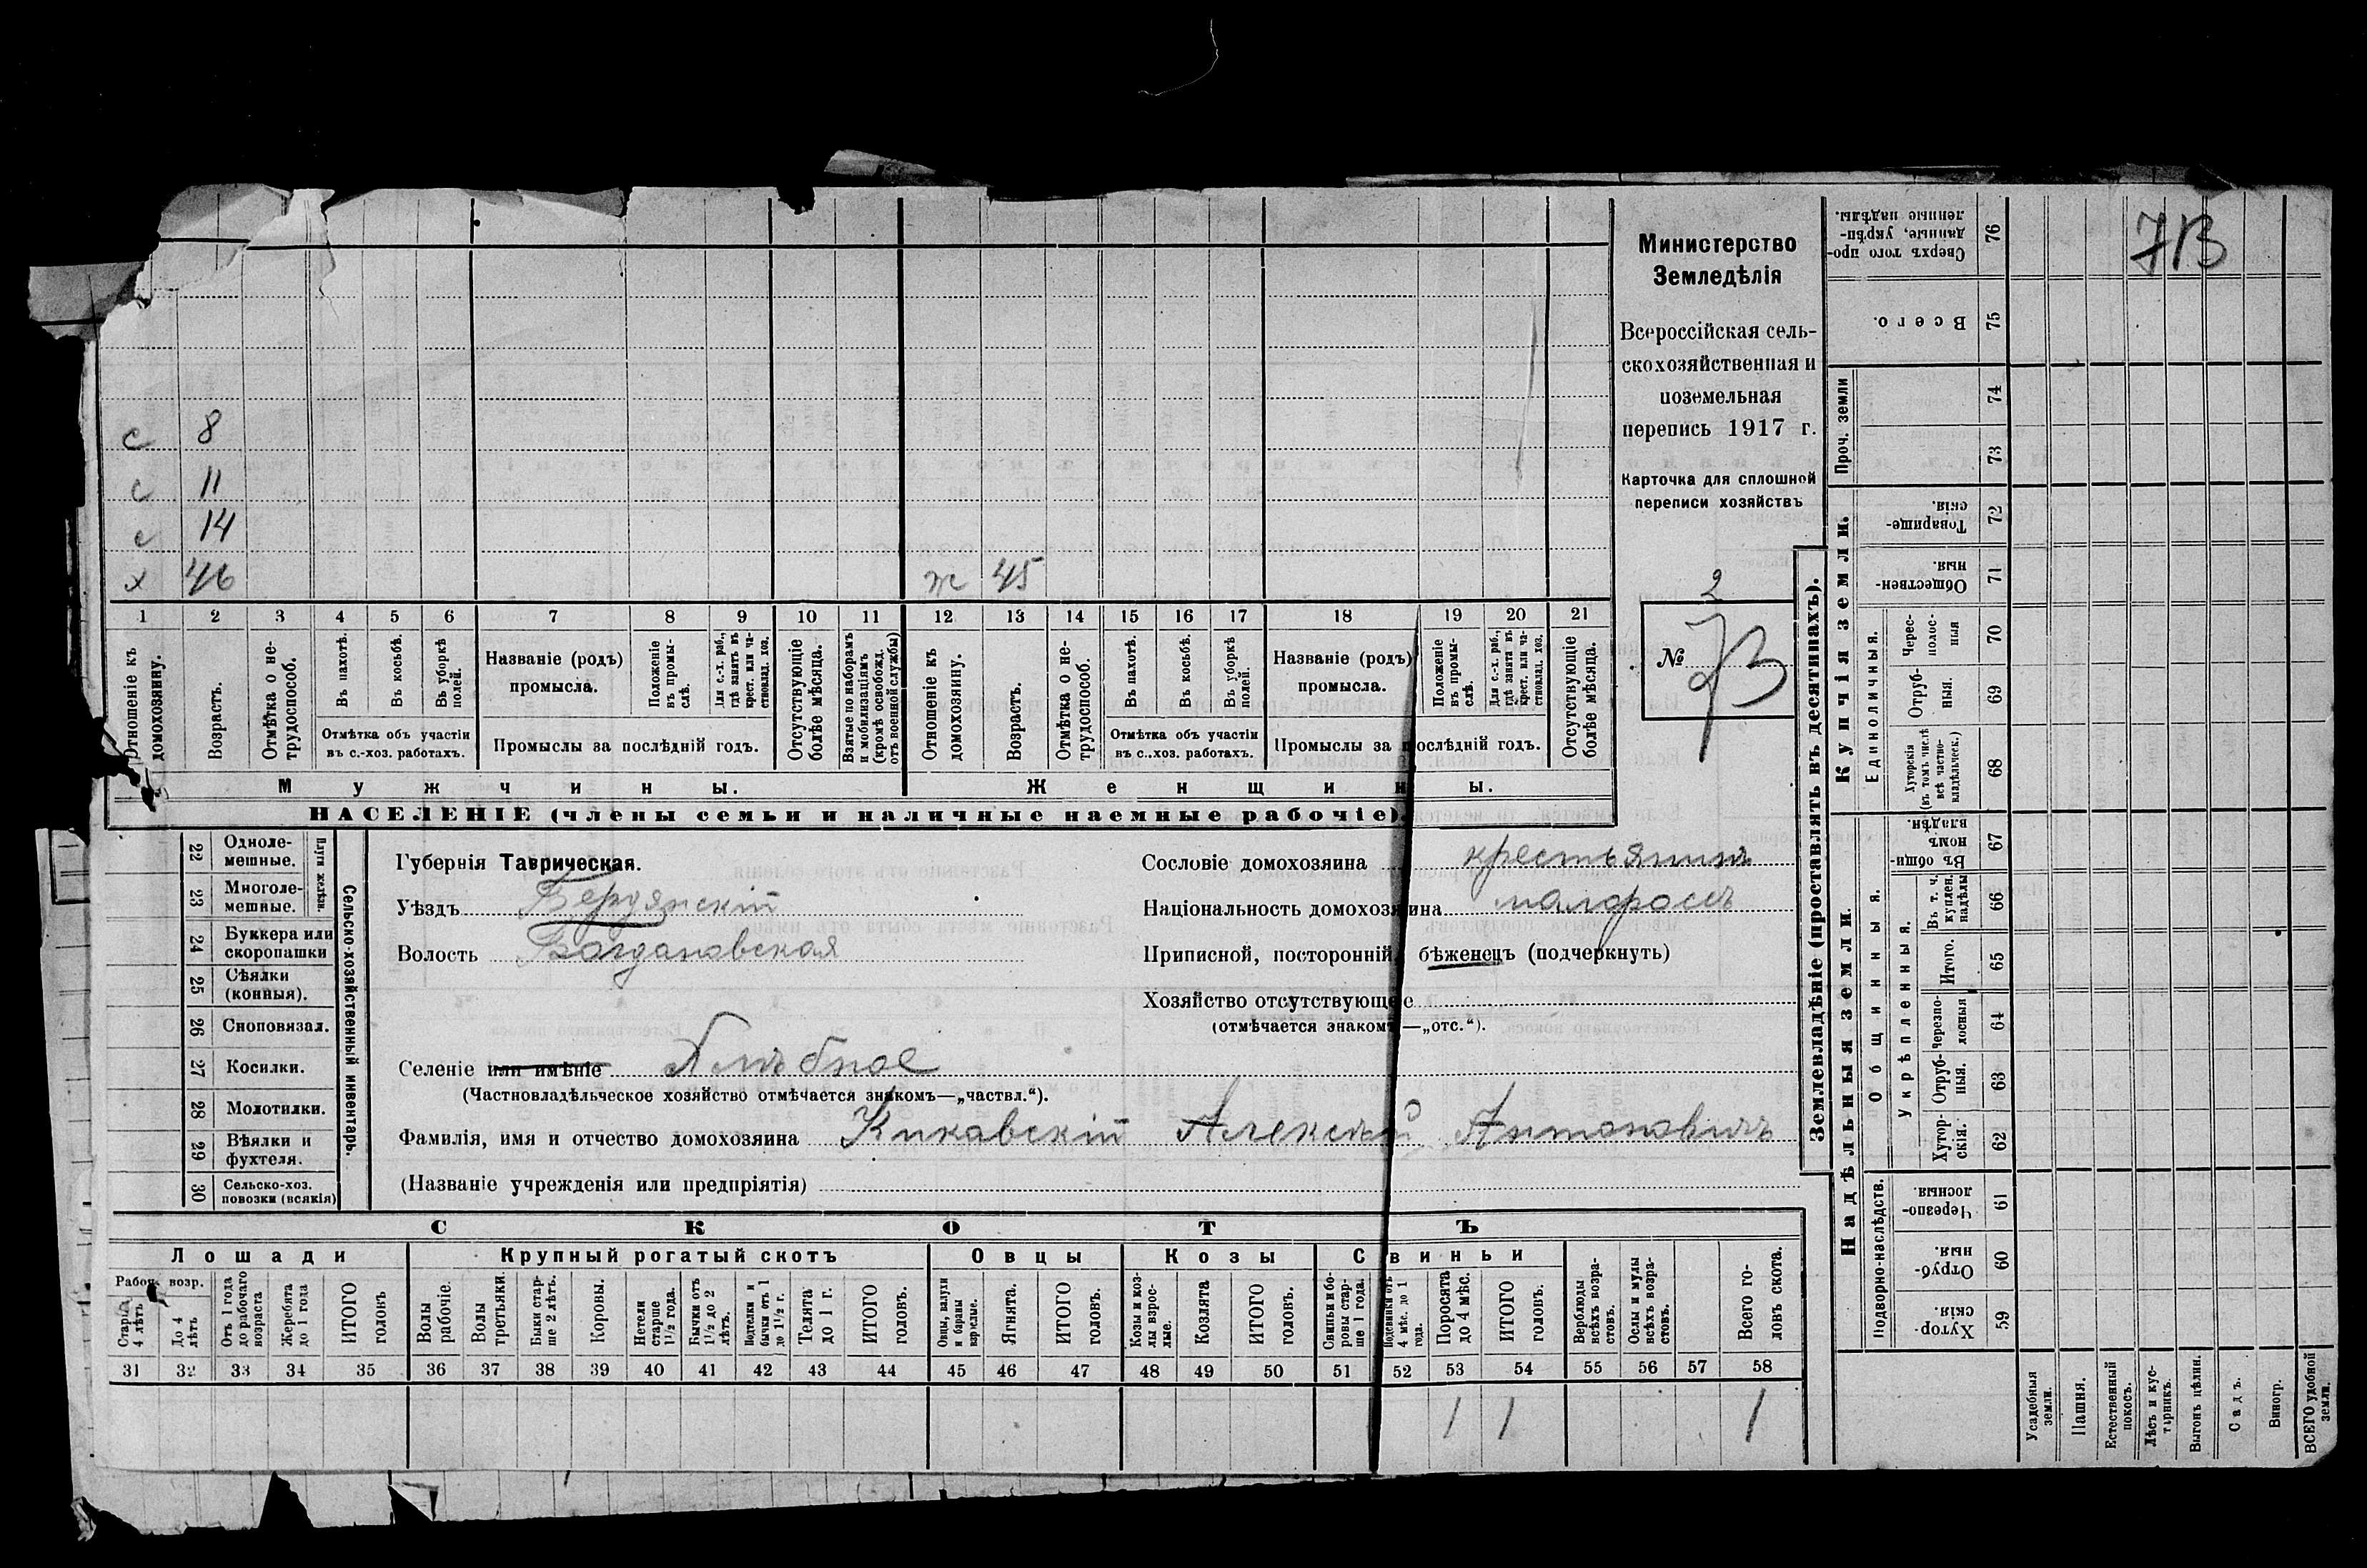 с 8
с 11
с 14
х 46 ж 45
1 2 3 4 5 6 7 8 9 10 11 12 13 14 15 16 17 18 19 20 21
Отношеніе къ домохозяину.
Возрастъ.
Отмѣтка о не-
трудоспособ.
Въ пахотѣ.
Въ косьбѣ.
Въ уборкѣ полей.
Отмѣтка объ участіи
въ с.-хоз. работахъ.
Названіе (родъ)
промысла.
Положеніе въ промы-
слѣ.
Для с.-х. раб.,
гдѣ занятъ въ
крест. или ча-
стновлад. хоз.
Промыслы за послѣдній годъ.
Отсутствующіе
болѣе мѣсяца.
Взятые по наборамъ
и мобилизаціямъ
(кромѣ освобожд.
отъ военной службы)
Отношеніе къ
домохозяину.
Возрастъ.
Отмѣтка о не-
трудоспособ.
Въ пахотѣ.
Въ косьбѣ.
Въ уборкѣ
полей.
Отмѣтка объ участіи
въ с.-хоз. работахъ.
Названіе (родъ)
промысла.
Положеніе
въ промы-
слѣ.
Для с.-х. раб.,
гдѣ занята въ
крест. или ча-
стновлад. хоз.
Промыслы за послѣдній годъ.
Отсутствующіе
болѣе мѣсяца.
Мужчины. Женщины.
НАСЕЛЕНІЕ (члены семьи и наличные наемные рабочіе).
Министерство
Земледѣлія
Всероссійская сель-
скохозяйственная и
поземельная
перепись 1917 г.
Карточка для сплошной
переписи хозяйствъ
2
№ 73
22 Одноле-
мешные.
23 Многоле-
мешные.
Плуги желѣзн.
24 Буккера или
скоропашки
25 Сѣялки
(конныя).
26 Сноповязал.
27 Косилки.
28 Молотилки.
29 Вѣялки и
фухтеля.
30 Сельско-хоз.
повозки (всякія)
Сельско-хозяйственный инвентарь.
Губернія Таврическая.
Уѣздъ Бердянскій
Волость Богдановская
Селеніе или имѣніе Хлѣбное
(Частновладѣльческое хозяйство отмѣчается знакомъ—„частвл.“).
Фамилія, имя и отчество домохозяина Кикавскій Алексѣй Антоновичъ
(Названіе учрежденія или предпріятія)
Сословіе домохозяина крестьянинъ
Національность домохозяина малоросъ
Приписной, посторонній, бѣженецъ (подчеркнуть)
Хозяйство отсутствующее
(отмѣчается знакомъ—„отс.“).
СКОТЪ
Лошади Крупный рогатый скотъ Овцы Козы Свиньи
Рабоч. возр.
Старше
4 лѣтъ
До 4
лѣтъ
Отъ 1 года
до рабочаго
возраста
Жеребята
до 1 года
ИТОГО
головъ
Волы
рабочіе.
Волы
третьяки.
Быки стар-
ше 2 лѣтъ.
Коровы.
Нетели
старше
1½ года.
Бычки отъ
1½ до 2
лѣтъ.
Подтелки и
бычки отъ 1
до 1½ г.
Телята
до 1 г.
ИТОГО
головъ.
Овцы, валухи
и бараны
взрослые.
Ягнята.
ИТОГО
головъ.
Козы и коз-
лы взрос-
лые.
Козлята
ИТОГО
головъ.
Свиньи и бо-
ровы стар-
ше 1 года.
Подсвинки отъ
4 мѣс. до 1
года.
Поросята
до 4 мѣс.
ИТОГО
головъ.
Верблюды
всѣхъ возра-
стовъ.
Ослы и мулы
всѣхъ возра-
стовъ.
Всего го-
ловъ скота.
31 32 33 34 35 36 37 38 39 40 41 42 43 44 45 46 47 48 49 50 51 52 53 54 55 56 57 58
1 1 1
Землевладѣніе (проставлять въ десятинахъ).
73
76 Сверхъ того про-
данные, укрѣп-
ленные надѣлы.
75 Всего.
74
73
Проч. земли
Купчія земли.
72 Товарище-
скія.
71 Обществен-
ныя.
Единоличныя.
70 Черес-
полос-
ныя
69 Отруб-
ныя.
68 Хуторскія
(въ томъ числѣ
всѣ частно-
владѣльческ.)
Надѣльныя земли.
Общинныя.
67 Въ общин-
номъ
владѣн.
Укрѣпленныя.
66 Въ т. ч.
куплен.
надѣлы
65 Итого.
64 Черезпо-
лосныя
63 Отруб-
ныя.
62 Хутор-
скія.
Подворно-наслѣдств.
61 Черезпо-
лосныя.
60 Отруб-
ныя.
59 Хутор-
скія.
Усадебныя
земли.
Пашня.
Естественный
покосъ.
Лѣсъ и кус-
тарникъ.
Выгонъ цѣлин.
Садъ.
Виногр.
ВСЕГО удобной
земли.